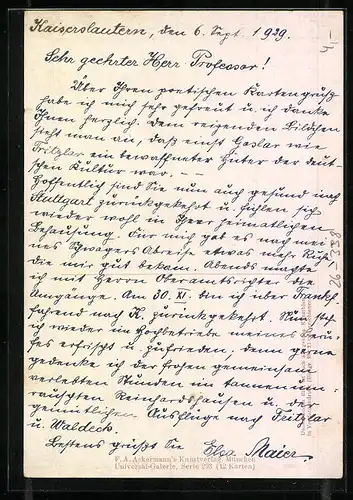 Kaiserslautern, den 6. Sept. 1929.
Sehr geehrter Herr Professor!
Über Ihren poetischen Kartengruß
habe ich mich sehr gefreut u. ich danke
Ihnen herzlich. Dem reizenden Bildchen
sieht man an, daß einst Goslar wie
Fritzlar ein bewaffneter Hüter der deut-
schen Kultur war. —
Hoffentlich sind Sie nun auch gesund nach
Stuttgart zurückgekehrt u. fühlen sich
wieder wohl in Ihrer heimatlichen
Behausung. Für mich gab es nach mei-
nes Schwagers Abreise etwas mehr Ruhe
die mir gut bekam. Abends machte
ich mit Herrn Oberamtsrichter die
Umgänge. Am 30. bin ich über Frankf.
fahrend nach K. zurückgekehrt. Nun steh
ich wieder im Hochbetriebe meines Beru-
fes erfrischt u. zufrieden, denn gerne
gedenke ich der frohen gemeinsam
verlebten Stunden im tannenum-
rauschten Reinhardshausen u. der
gemütlichen Ausflüge nach Fritzlar
u. Waldeck.
Bestens grüßt Sie Elsa Maier
F. A. Ackermann's Kunstverlag, München
Universal-Galerie, Serie 293 (12 Karten)